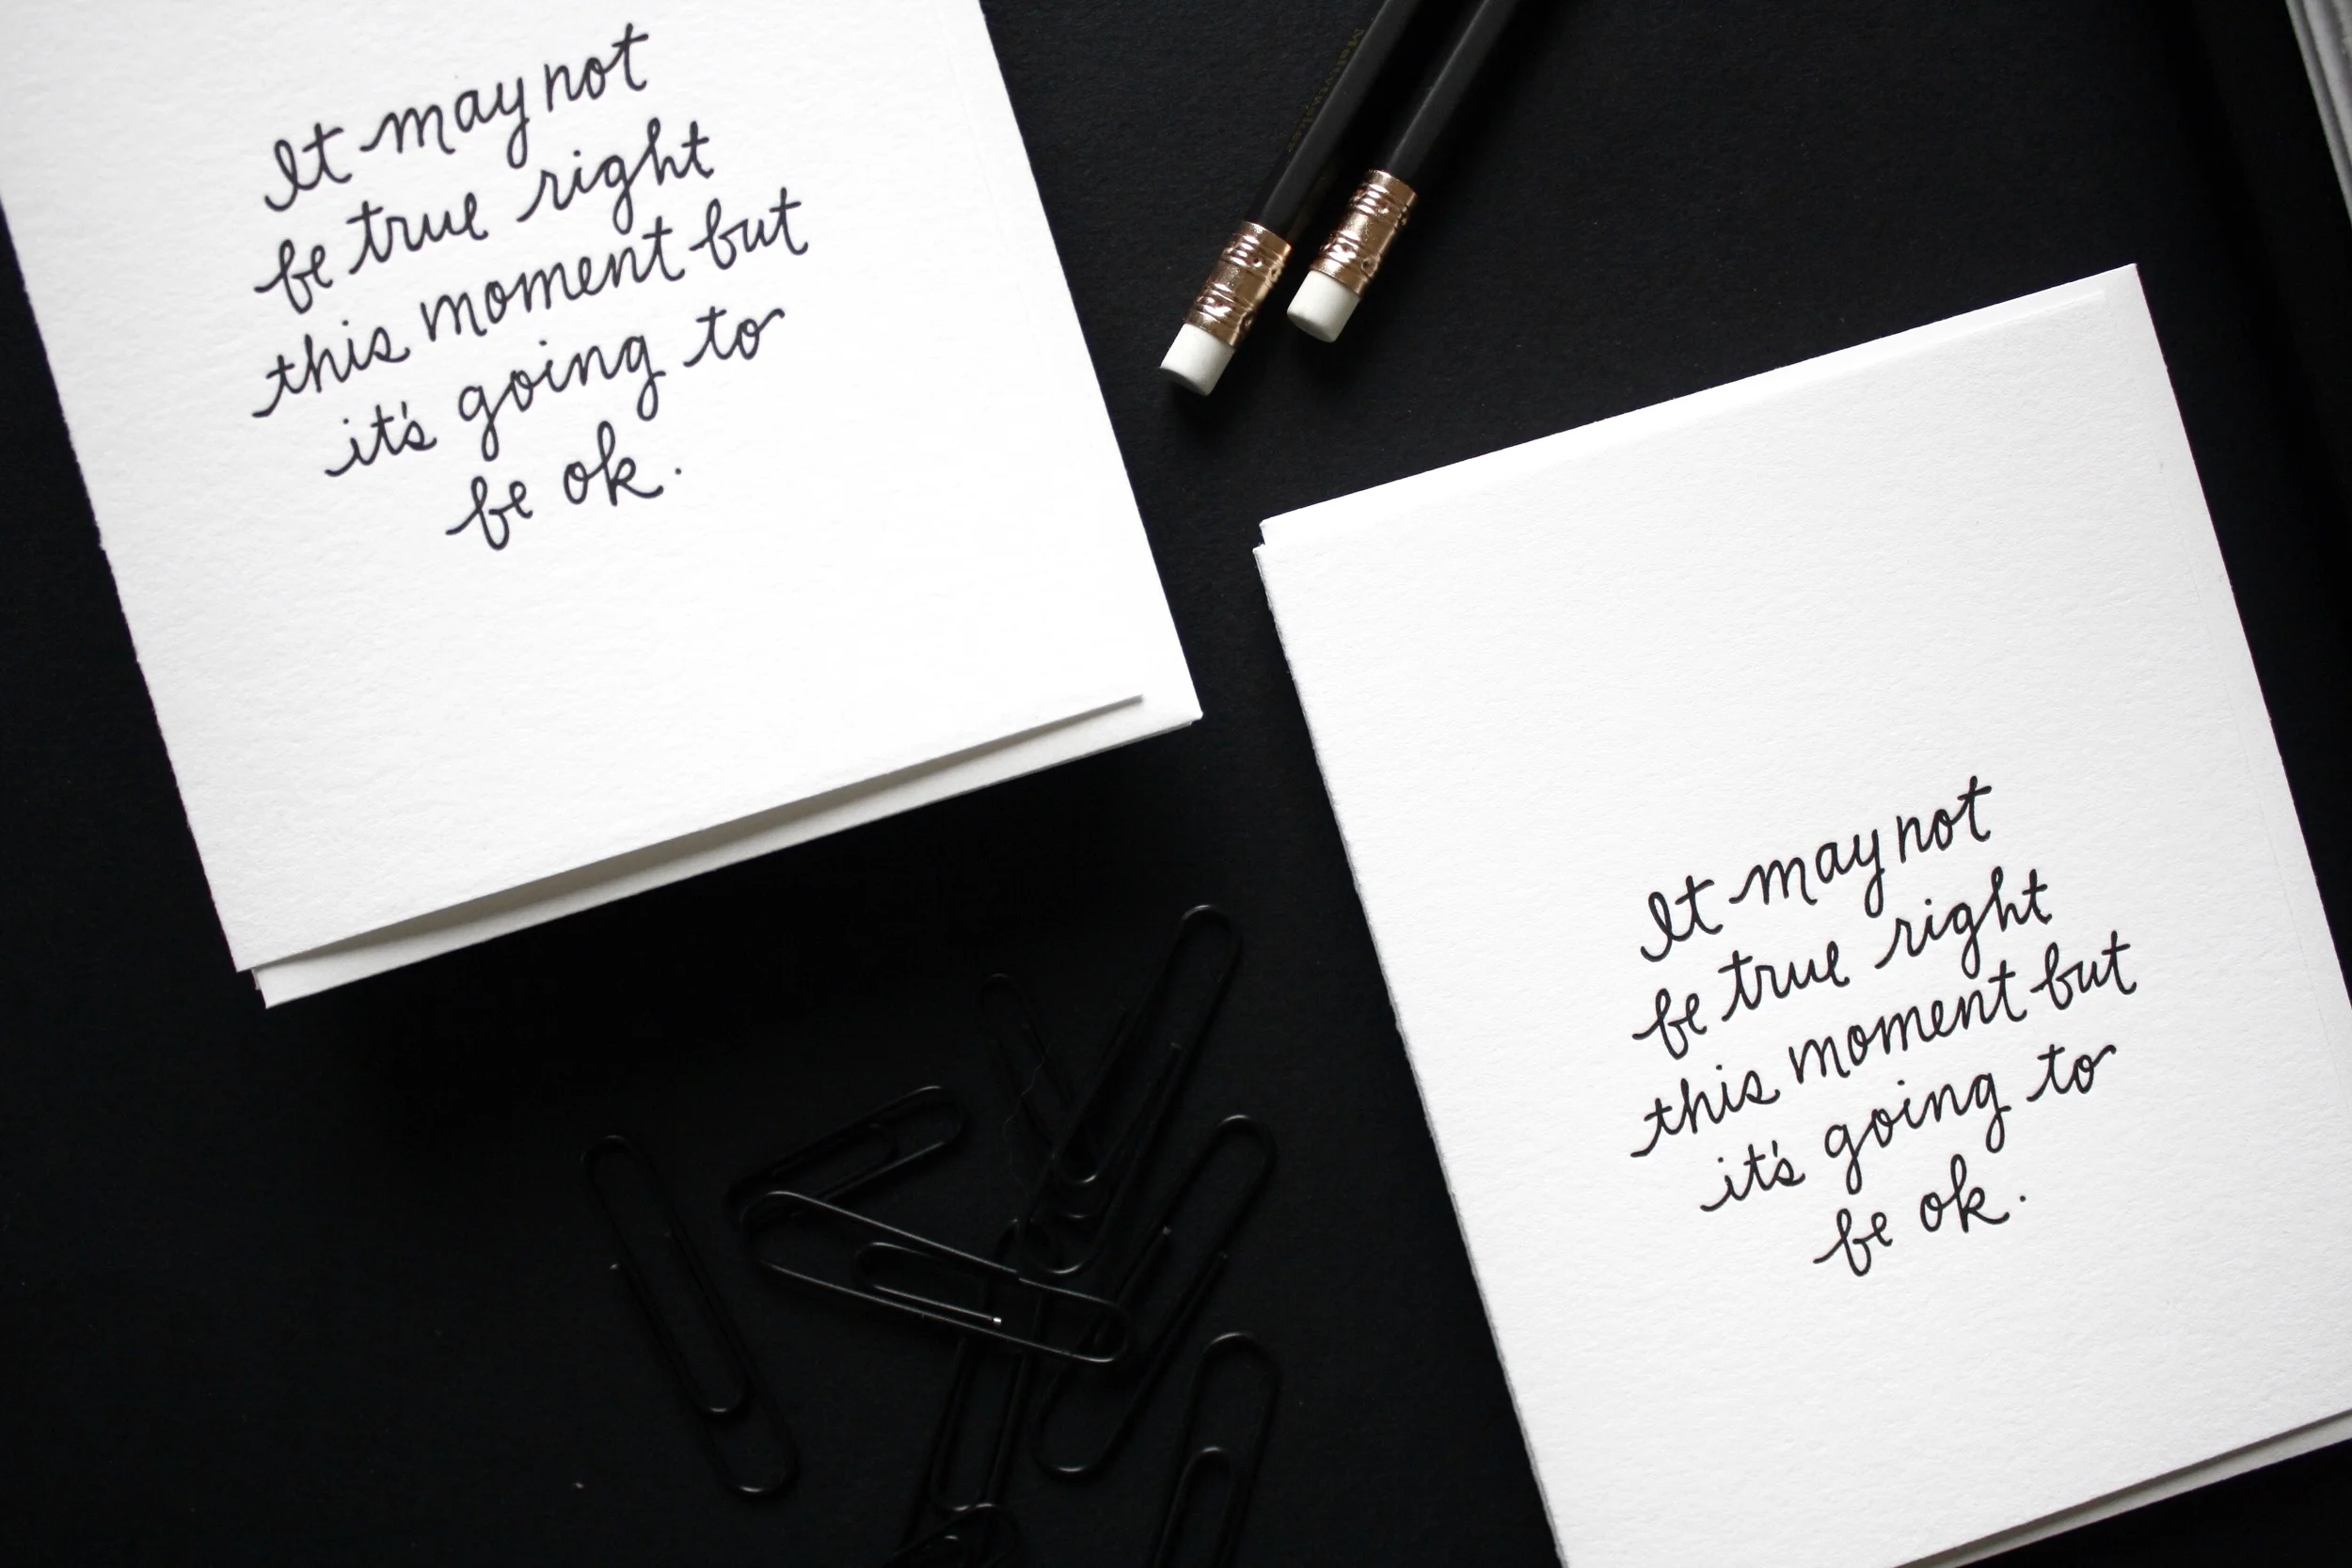 It may not
be true right
this moment but
it's going to
be ok.
It may not
be true right
this moment but
it's going to
be ok.